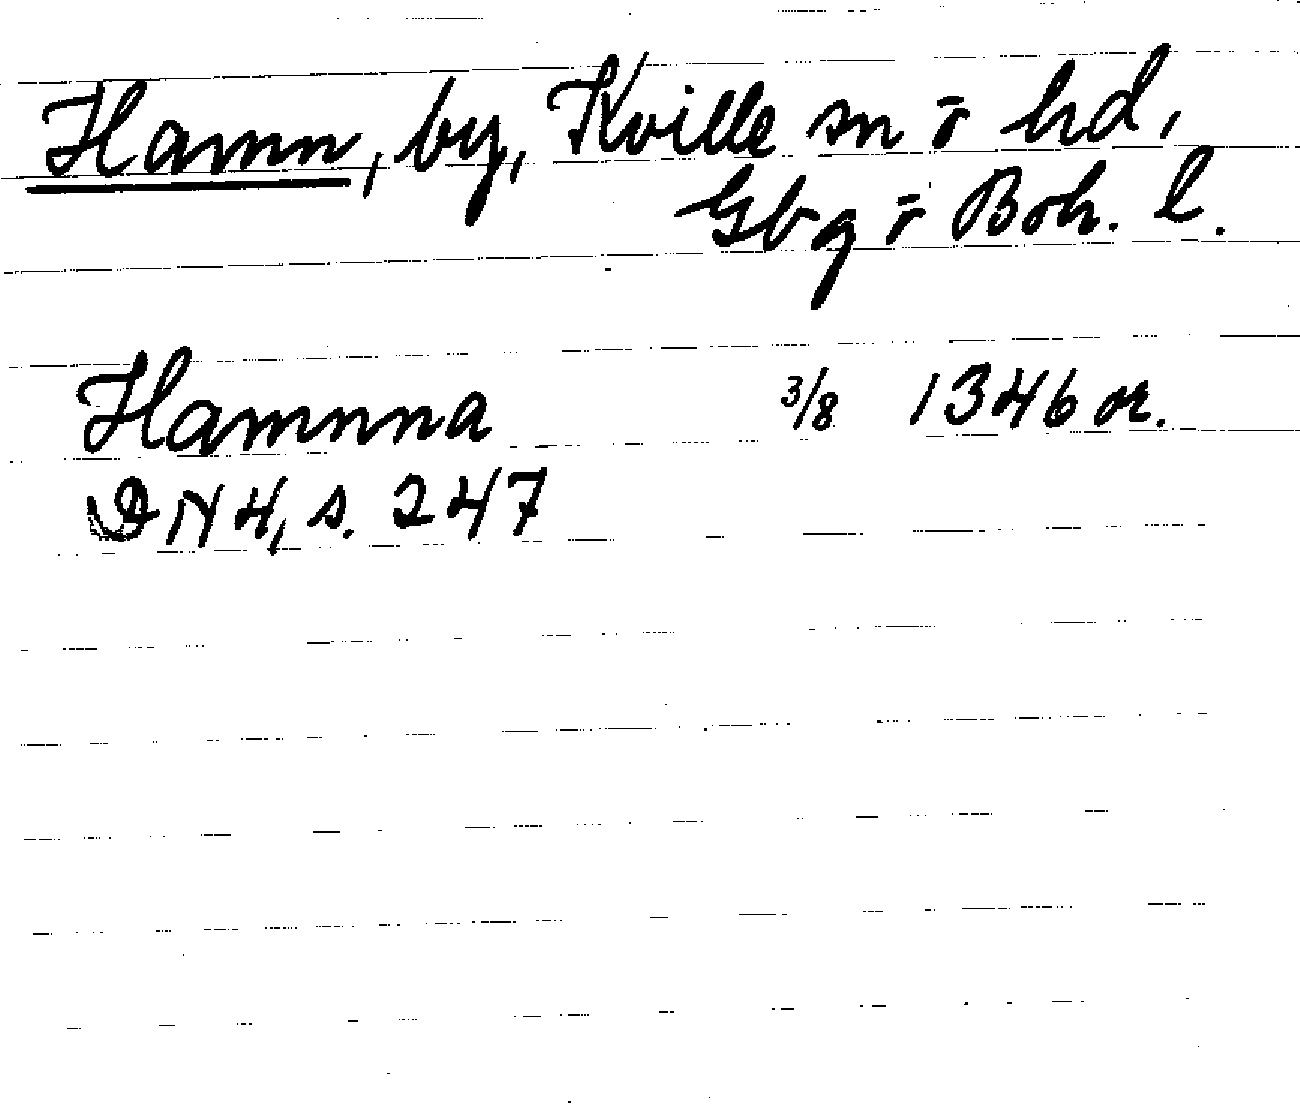 Hamn, by, Kville sn o hd,
Gbg o Boh. l.
Hamnna 3/8 1346 or.
DN 4, s. 247